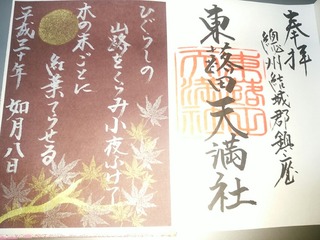 奉拝
總州結城郡鎮座
東蕗田天満社
ひぐらしの
山路をくらみ小夜ふけて
木の末ごとに
紅葉てらせる
平成三十年
如月八日